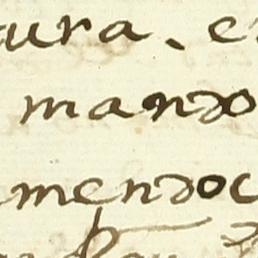 ura. e
mando
mendoc